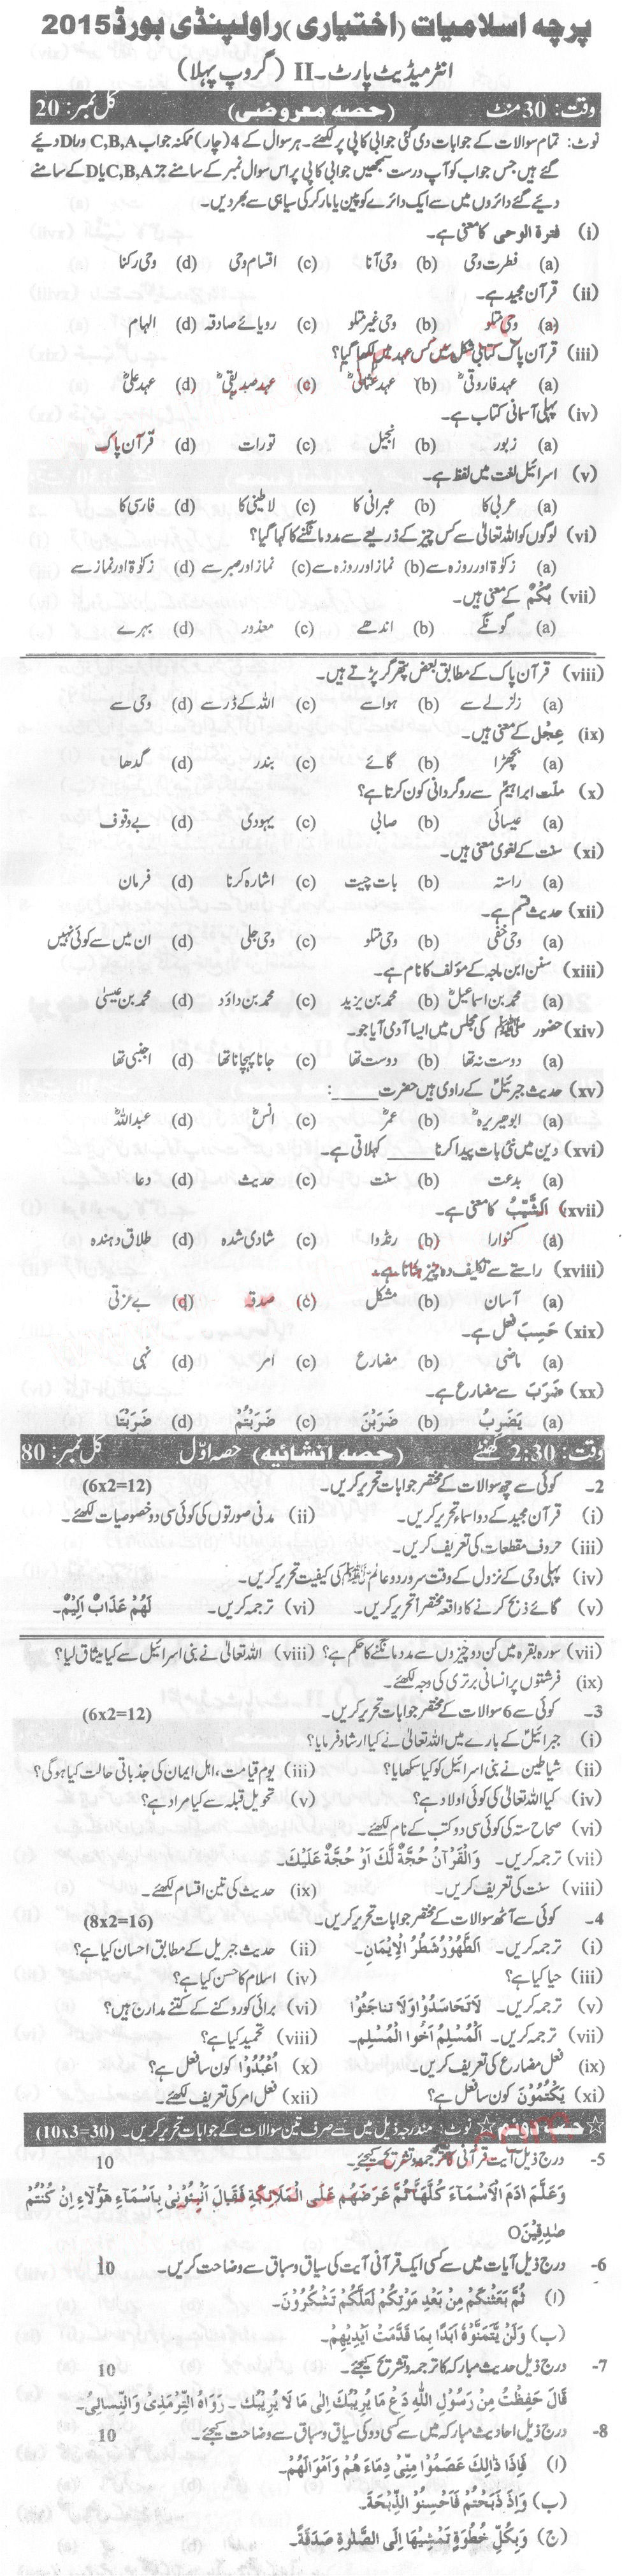 پرچہ اسلامیات (اختیاری) راولپنڈی بورڈ 2015
انٹرمیڈیٹ پارٹ۔ II (گروپ پہلا)
وقت: 30 منٹ (حصہ معروضی) کل نمبر: 20
نوٹ: تمام سوالات کے جوابات دی گئی جوابی کاپی پر لکھئے۔ ہر سوال کے 4 (چار) ممکنہ جواب C,B,A اور D دیئے
گئے ہیں جس جواب کو آپ درست سمجھیں جوابی کاپی پر اس سوال نمبر کے سامنے جز C,B,A یا D کے سامنے
دیئے گئے دائروں میں سے ایک دائرے کو پین یا مارکر کی سیاہی سے بھر دیں۔
(i) فترۃ الوحی کا معنی ہے۔
(a) فطرت وحی (b) وحی آنا (c) اقسام وحی (d) وحی رکنا
(ii) قرآن مجید ہے۔
(a) وحی متلو (b) وحی غیر متلو (c) رویائے صادقہ (d) الہام
(iii) قرآن پاک کتابی شکل میں کس عہد میں لکھا گیا؟
(a) عہد فاروقیؓ (b) عہد عثمانیؓ (c) عہد صدیقیؓ (d) عہد علیؓ
(iv) پہلی آسمانی کتاب ہے۔
(a) زبور (b) انجیل (c) تورات (d) قرآن پاک
(v) اسرائیل لغت میں لفظ ہے۔
(a) عربی کا (b) عبرانی کا (c) لاطینی کا (d) فارسی کا
(vi) لوگوں کو اللہ تعالیٰ سے کس چیز کے ذریعے سے مدد مانگنے کا کہا گیا؟
(a) زکوٰۃ اور روزہ سے (b) نماز اور روزہ سے (c) نماز اور صبر سے (d) زکوٰۃ اور نماز سے
(vii) بُكْمٌ کے معنی ہیں۔
(a) گونگے (b) اندھے (c) معذور (d) بہرے
(viii) قرآن پاک کے مطابق بعض پتھر گر پڑتے ہیں۔
(a) زلزلے سے (b) ہوا سے (c) اللہ کے ڈر سے (d) وحی سے
(ix) عِجْل کے معنی ہیں۔
(a) بچھڑا (b) گائے (c) بندر (d) گدھا
(x) ملت ابراہیمؑ سے روگردانی کون کرتا ہے؟
(a) عیسائی (b) صابی (c) یہودی (d) بے وقوف
(xi) سنت کے لغوی معنی ہیں۔
(a) راستہ (b) بات چیت (c) اشارہ کرنا (d) فرمان
(xii) حدیث قسم ہے۔
(a) وحی خفی (b) وحی متلو (c) وحی جلی (d) ان میں سے کوئی نہیں
(xiii) سنن ابن ماجہ کے مؤلف کا نام ہے۔
(a) محمد بن اسماعیلؒ (b) محمد بن یزید (c) محمد بن داؤد (d) محمد بن عیسیٰ
(xiv) حضور ﷺ کی مجلس میں ایسا آدمی آیا جو۔
(a) دوست نہ تھا (b) دوست تھا (c) جانا پہچانا تھا (d) اجنبی تھا
(xv) حدیث جبرئیلؑ کے راوی ہیں حضرت _____:
(a) ابوھریرہؓ (b) عمرؓ (c) انسؓ (d) عبداللہؓ
(xvi) دین میں نئی بات پیدا کرنا _____ کہلاتی ہے۔
(a) بدعت (b) سنت (c) حدیث (d) دعا
(xvii) اَلثَّيِّبُ کا معنی ہے۔
(a) کنوارا (b) رنڈوا (c) شادی شدہ (d) طلاق دہندہ
(xviii) راستے سے تکلیف دہ چیز ہٹانا ہے۔
(a) آسان (b) مشکل (c) صدقہ (d) بے عزتی
(xix) حَسِبَ فعل ہے۔
(a) ماضی (b) مضارع (c) امر (d) نہی
(xx) ضَرَبَ سے مضارع ہے۔
(a) يَضْرِبُ (b) ضَرَبْنَ (c) ضَرَبْتُمْ (d) ضَرَبْتَا
وقت: 2:30 گھنٹے (حصہ انشائیہ) حصہ اوّل کل نمبر: 80
2۔ کوئی سے چھ سوالات کے مختصر جوابات تحریر کریں۔ (6x2=12)
(i) قرآن مجید کے دو اسماء تحریر کریں۔ (ii) مدنی صورتوں کی کوئی سی دو خصوصیات لکھئے۔
(iii) حروف مقطعات کی تعریف کریں۔
(iv) پہلی وحی کے نزول کے وقت سرور دو عالم ﷺ کی کیفیت تحریر کریں۔
(v) گائے ذبح کرنے کا واقعہ مختصراً تحریر کریں۔ (vi) ترجمہ کریں۔ لَهُمْ عَذَابٌ اَلِيْمٌ۔
(vii) سورہ بقرہ میں کن دو چیزوں سے مدد مانگنے کا حکم ہے؟ (viii) اللہ تعالیٰ نے بنی اسرائیل سے کیا میثاق لیا؟
(ix) فرشتوں پر انسانی برتری کی وجہ لکھئے۔
3۔ کوئی سے 6 سوالات کے مختصر جوابات تحریر کریں۔ (6x2=12)
(i) جبرائیلؑ کے بارے میں اللہ تعالیٰ نے کیا ارشاد فرمایا؟
(ii) شیاطین نے بنی اسرائیل کو کیا سکھایا؟ (iii) یوم قیامت، اہل ایمان کی جذباتی حالت کیا ہوگی؟
(iv) کیا اللہ تعالیٰ کی کوئی اولاد ہے؟ (v) تحویل قبلہ سے کیا مراد ہے؟
(vi) صحاح ستہ کی کوئی سی دو کتب کے نام لکھئے۔
(vii) ترجمہ کریں۔ وَالْقُرْآنُ حُجَّةٌ لَّكَ اَوْ حُجَّةٌ عَلَيْكَ۔
(viii) سنت کی تعریف کریں۔ (ix) حدیث کی تین اقسام لکھئے۔
4۔ کوئی سے آٹھ سوالات کے مختصر جوابات تحریر کریں۔ (8x2=16)
(i) ترجمہ کریں۔ اَلطَّهُوْرُ شَطْرُ الْاِيْمَانِ۔ (ii) حدیث جبریل کے مطابق احسان کیا ہے؟
(iii) حیا کیا ہے؟ (iv) اسلام کا حسن کیا ہے؟
(v) ترجمہ کریں۔ لَاتَحَاسَدُوْا وَلَا تَنَاجَشُوْا (vi) برائی کو روکنے کے کتنے مدارج ہیں؟
(vii) ترجمہ کریں۔ اَلْمُسْلِمُ اَخُوا الْمُسْلِمِ۔ (viii) تحمید کیا ہے؟
(ix) فعل مضارع کی تعریف کریں۔ (x) اُعْبُدُوْا کون سا فعل ہے؟
(xi) يَكْتُمُوْنَ کون سا فعل ہے؟ (xii) فعل امر کی تعریف لکھئے۔
☆ حصہ دوم ☆ نوٹ: مندرجہ ذیل میں سے صرف تین سوالات کے جوابات تحریر کریں۔ (10x3=30)
5- درج ذیل آیت قرآنی کا ترجمہ و تشریح کیجئے۔ 10
وَعَلَّمَ اٰدَمَ الْاَسْمَآءَ كُلَّهَا ثُمَّ عَرَضَهُمْ عَلَى الْمَلٰٓئِكَةِ فَقَالَ اَنْۢبِئُوْنِيْ بِاَسْمَآءِ هٰٓؤُلَآءِ اِنْ كُنْتُمْ
صٰدِقِيْنَ○
6- درج ذیل آیات میں سے کسی ایک قرآنی آیت کی سیاق و سباق سے وضاحت کریں۔ 10
(ا) ثُمَّ بَعَثْنٰكُمْ مِنْ بَعْدِ مَوْتِكُمْ لَعَلَّكُمْ تَشْكُرُوْنَ۔
(ب) وَلَنْ يَّتَمَنَّوْهُ اَبَدًا بِمَا قَدَّمَتْ اَيْدِيْهِمْ۔
7- درج ذیل حدیث مبارکہ کا ترجمہ و تشریح کیجئے۔ 10
قَالَ حَفِظْتُ مِنْ رَسُوْلِ اللّٰهِ دَعْ مَا يُرِيْبُكَ اِلٰى مَا لَا يُرِيْبُكَ۔ رَوَاهُ التِّرْمَذِيُّ وَالنِّسَائِيُّ۔
8- درج ذیل احادیث مبارکہ میں سے کسی دو کی سیاق و سباق سے وضاحت کیجئے۔ 10
(ا) فَاِذَا ذَالِكَ عَصَمُوْا مِنِّيْ دِمَاءَ هُمْ وَاَمْوَالَهُمْ۔
(ب) وَاِذَ ذَبَحْتُمْ فَاَحْسِنُوْا الذِّبْحَةَ۔
(ج) وَبِكُلِّ خُطْوَةٍ تَمْشِيْهَا اِلَى الصَّلٰوةِ صَدَقَةٌ۔